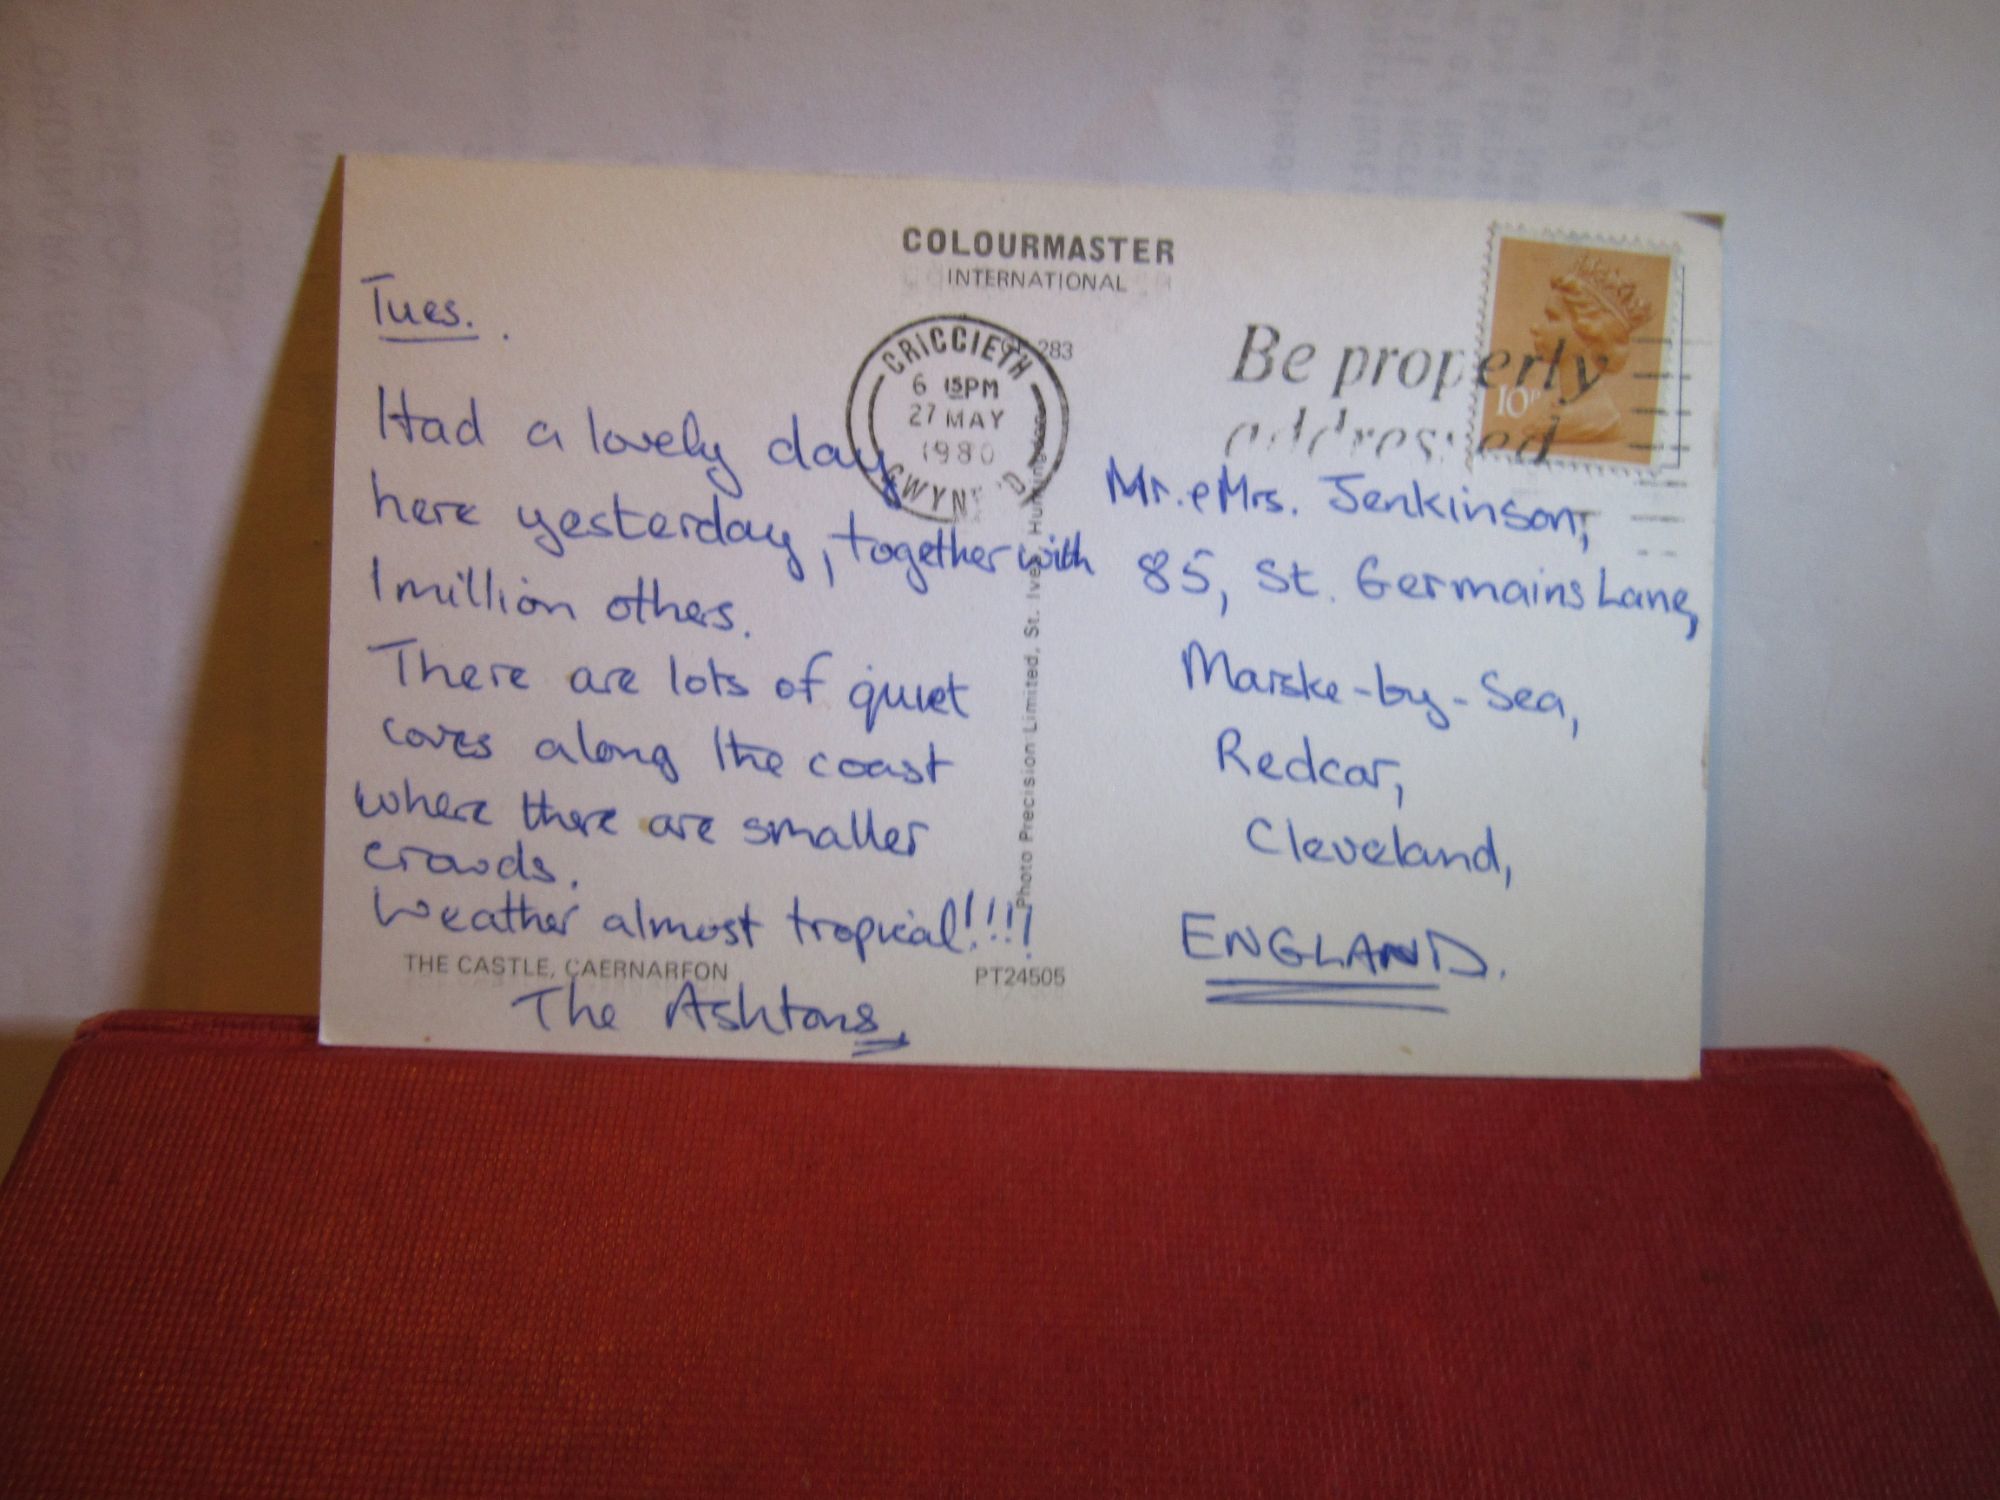 COLOURMASTER
INTERNATIONAL
283
CRICCIETH
6 15PM
27 MAY
1980
Be properly
addressed
10P
Tues.
Had a lovely day
here yesterday, together with
1 million others.
There are lots of quiet
coves along the coast
where there are smaller
crowds.
Weather almost tropical!!!!
THE CASTLE, CAERNARFON
PT24505
The Ashtons.
Photo Precision Limited, St. Ives, Huntingdon
Mr. & Mrs. Jenkinson,
85, St. Germains Lane,
Marske-by-Sea,
Redcar,
Cleveland,
ENGLAND.